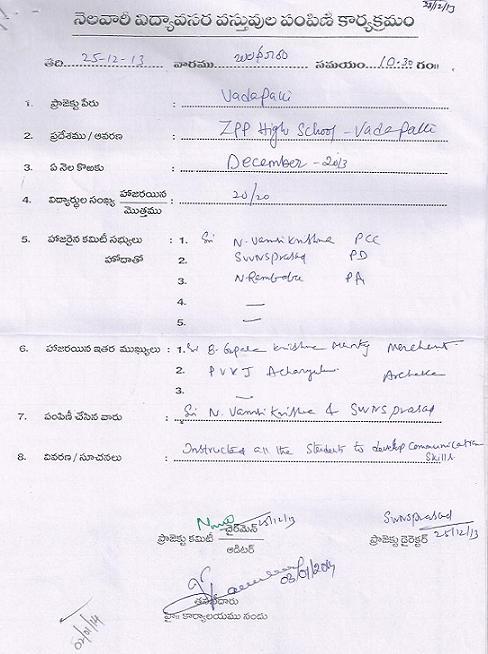 28/12/13
నెలవారీ విద్యావసర వస్తువుల పంపిణీ కార్యక్రమం
తేది 25-12-13 వారము బుధవారం సమయం 10-30 గం॥
1. ప్రాజెక్టు పేరు : Vadapalli
2. ప్రదేశము / ఆవరణ : ZPP High School - Vadapalli
3. ఏ నెల కొఱకు : December - 2013
4. విద్యార్థుల సంఖ్య హాజరయిన / మొత్తము : 20/20
5. హాజరైన కమిటీ సభ్యులు : 1. Sri N. Vamsi Krishna PCC
హోదాతో 2. SWNS Prasad PD
3. N Rambabu PA
4. —
5. —
6. హాజరయిన ఇతర ముఖ్యులు : 1. Sri B. Gopala Krishna Murty Merchent
2. P V K J Acharyulu Archaka
3. —
7. పంపిణీ చేసిన వారు : Sri N. Vamsi Krishna & SWNS Prasad
8. వివరణ / సూచనలు : Instructed all the Students to develop Communication
Skills
25/12/13 SWNS Prasad
ప్రాజెక్టు కమిటీ చైర్‌మెన్ / ఆడిటర్ ప్రాజెక్టు డైరెక్టర్ 25/12/13
03/01/2014
హై॥ కార్యాలయము నందు
02/01/14